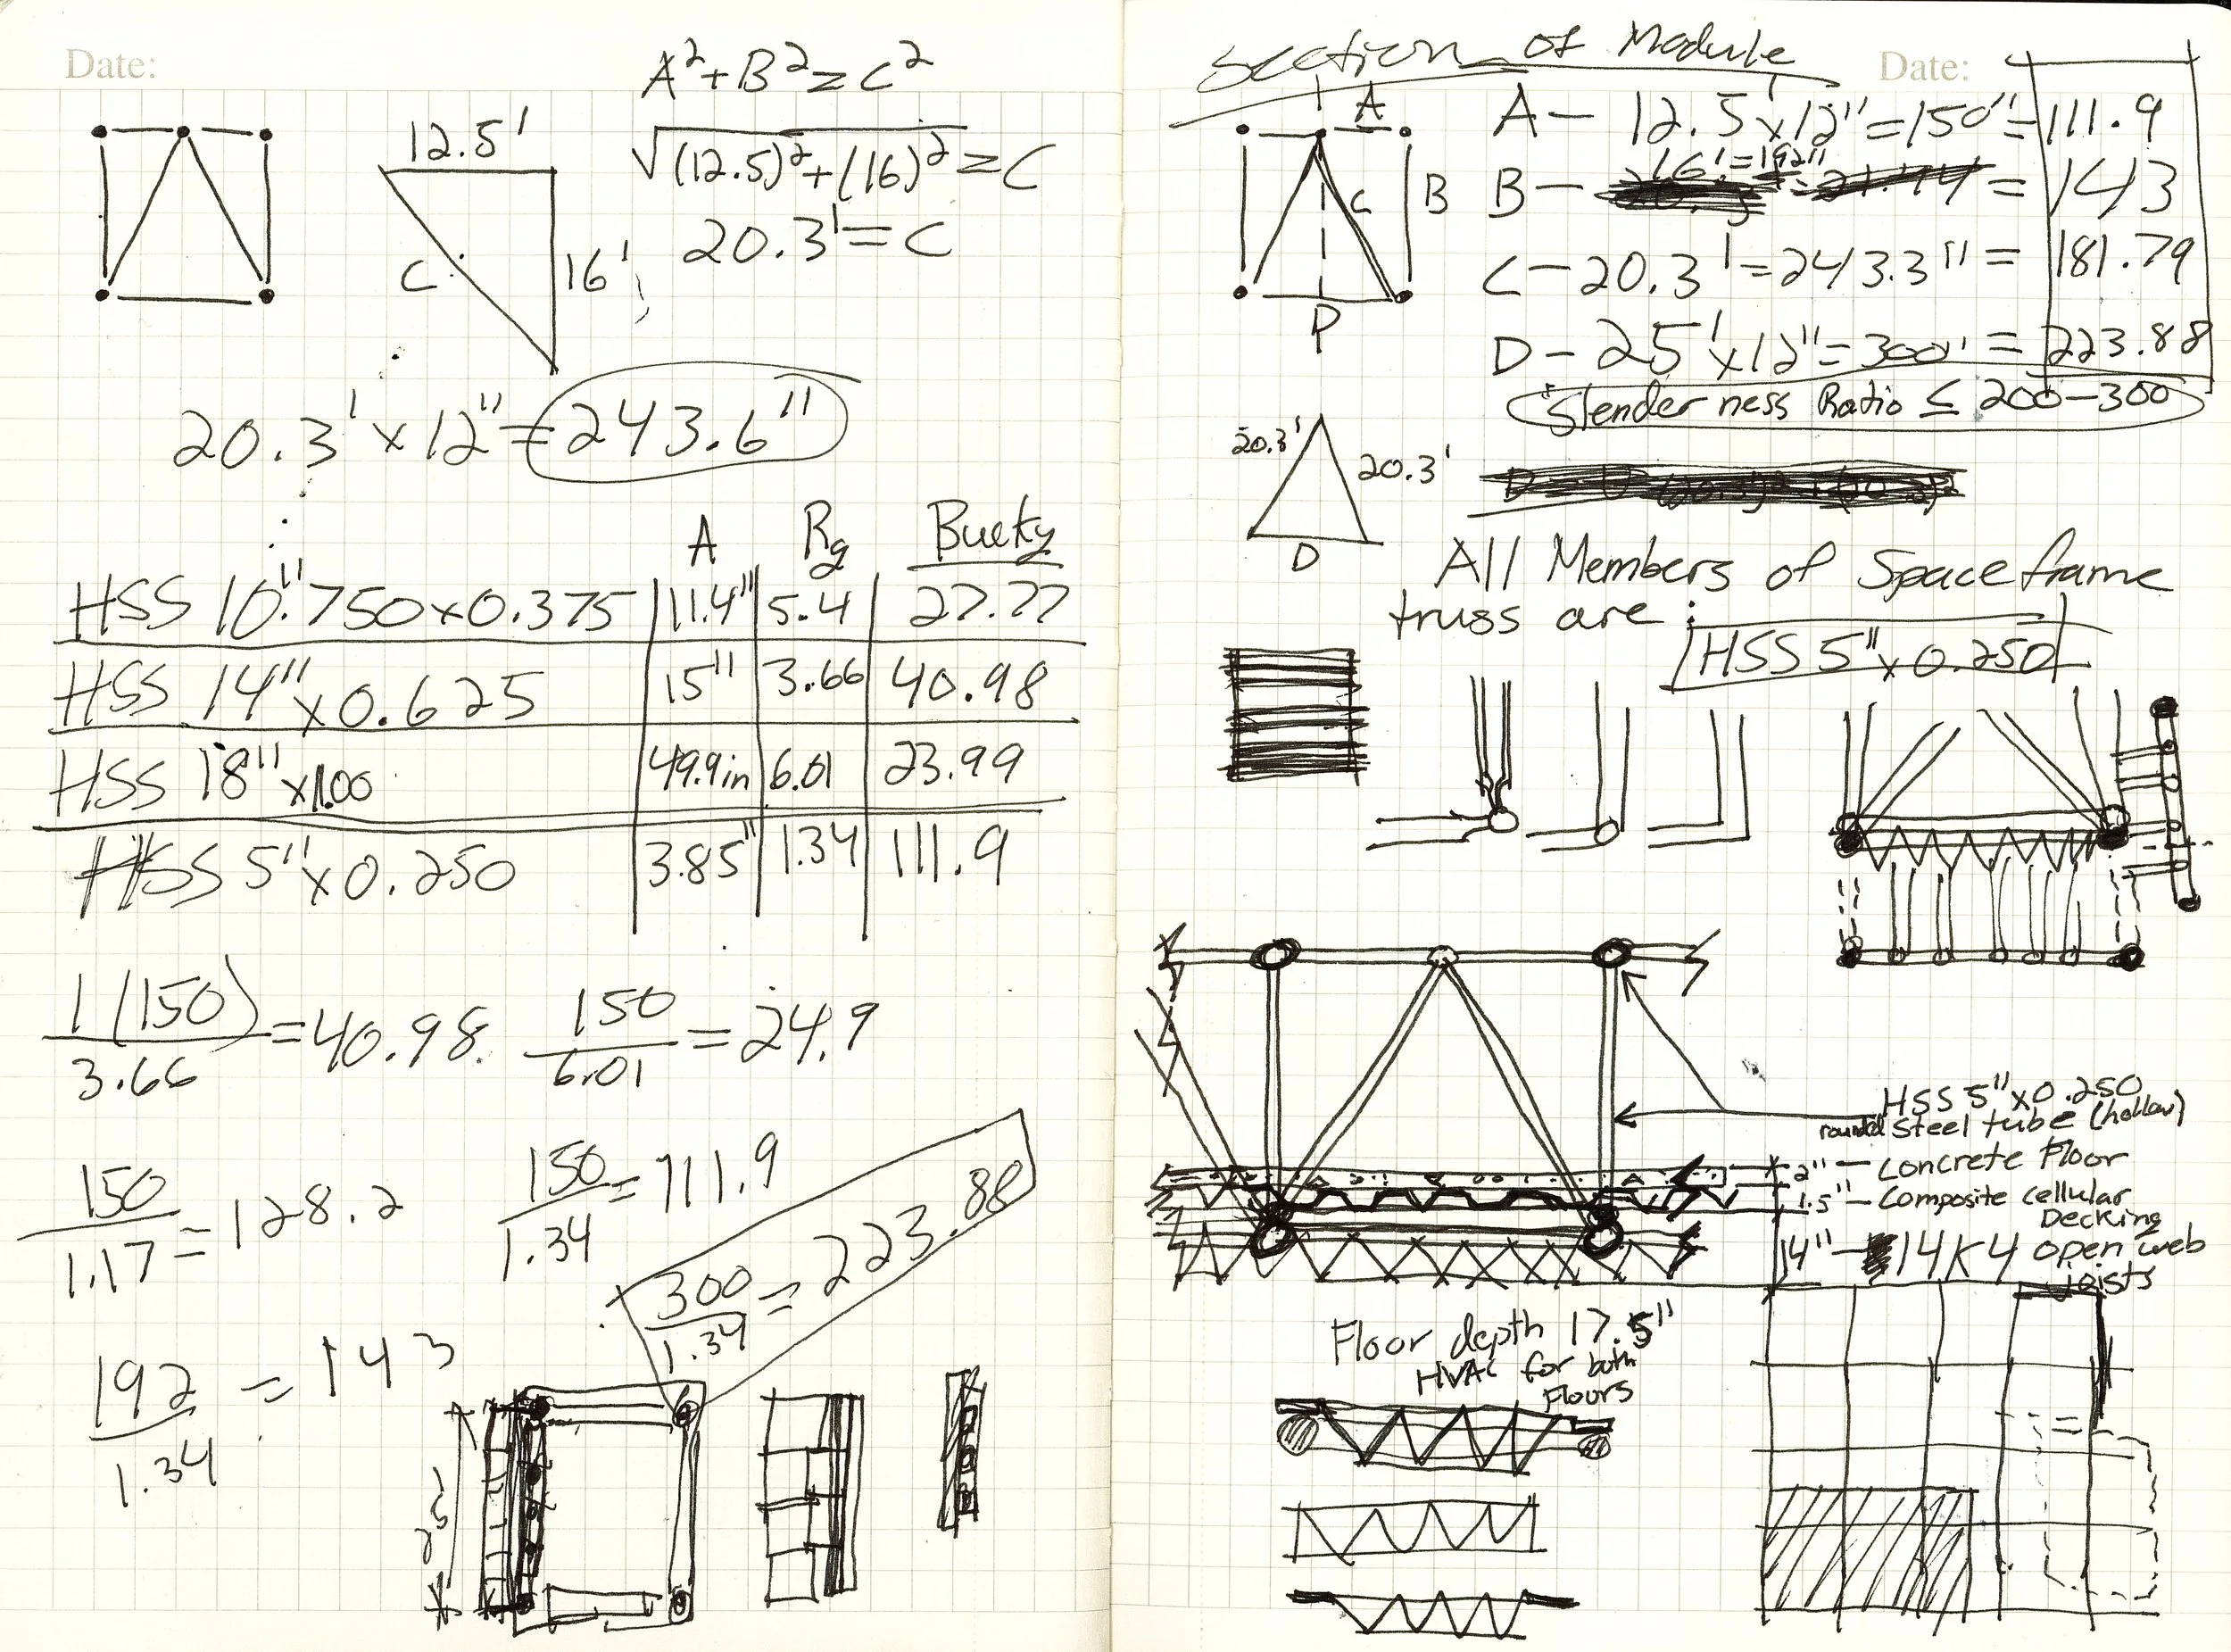 Date:
A²+B²=C²
12.5'
√(12.5)²+(16)²=C
20.3'=C
C
16'
20.3'×12"=243.6"
A Rg Bucky
HSS 10."750×0.375 11.4" 5.4 27.77
HSS 14"×0.625 15" 3.66 40.98
HSS 18"×1.00 49.9in 6.01 23.99
HSS 5"×0.250 3.85" 1.34 111.9
1(150)/3.66=40.98
150/6.01=24.9
150/1.17=128.2
150/1.34=111.9
300/1.34=223.88
192/1.34=143
25'
Section of Module
Date:
A
B
C
D
A— 12.5'×12"=150"=111.9
B— 16'=192" = 143
C—20.3'=243.3"= 181.79
D—25'×12"=300"=223.88
Slenderness Ratio ≤ 200-300
20.3'
20.3'
D
All Members of Spaceframe
truss are:
HSS 5"×0.250
HSS 5"×0.250
rounded Steel tube (hollow)
2"— Concrete Floor
1.5"— Composite cellular
Decking
14"— 14K4 open web
Joists
Floor depth 17.5"
HVAC for both
Floors